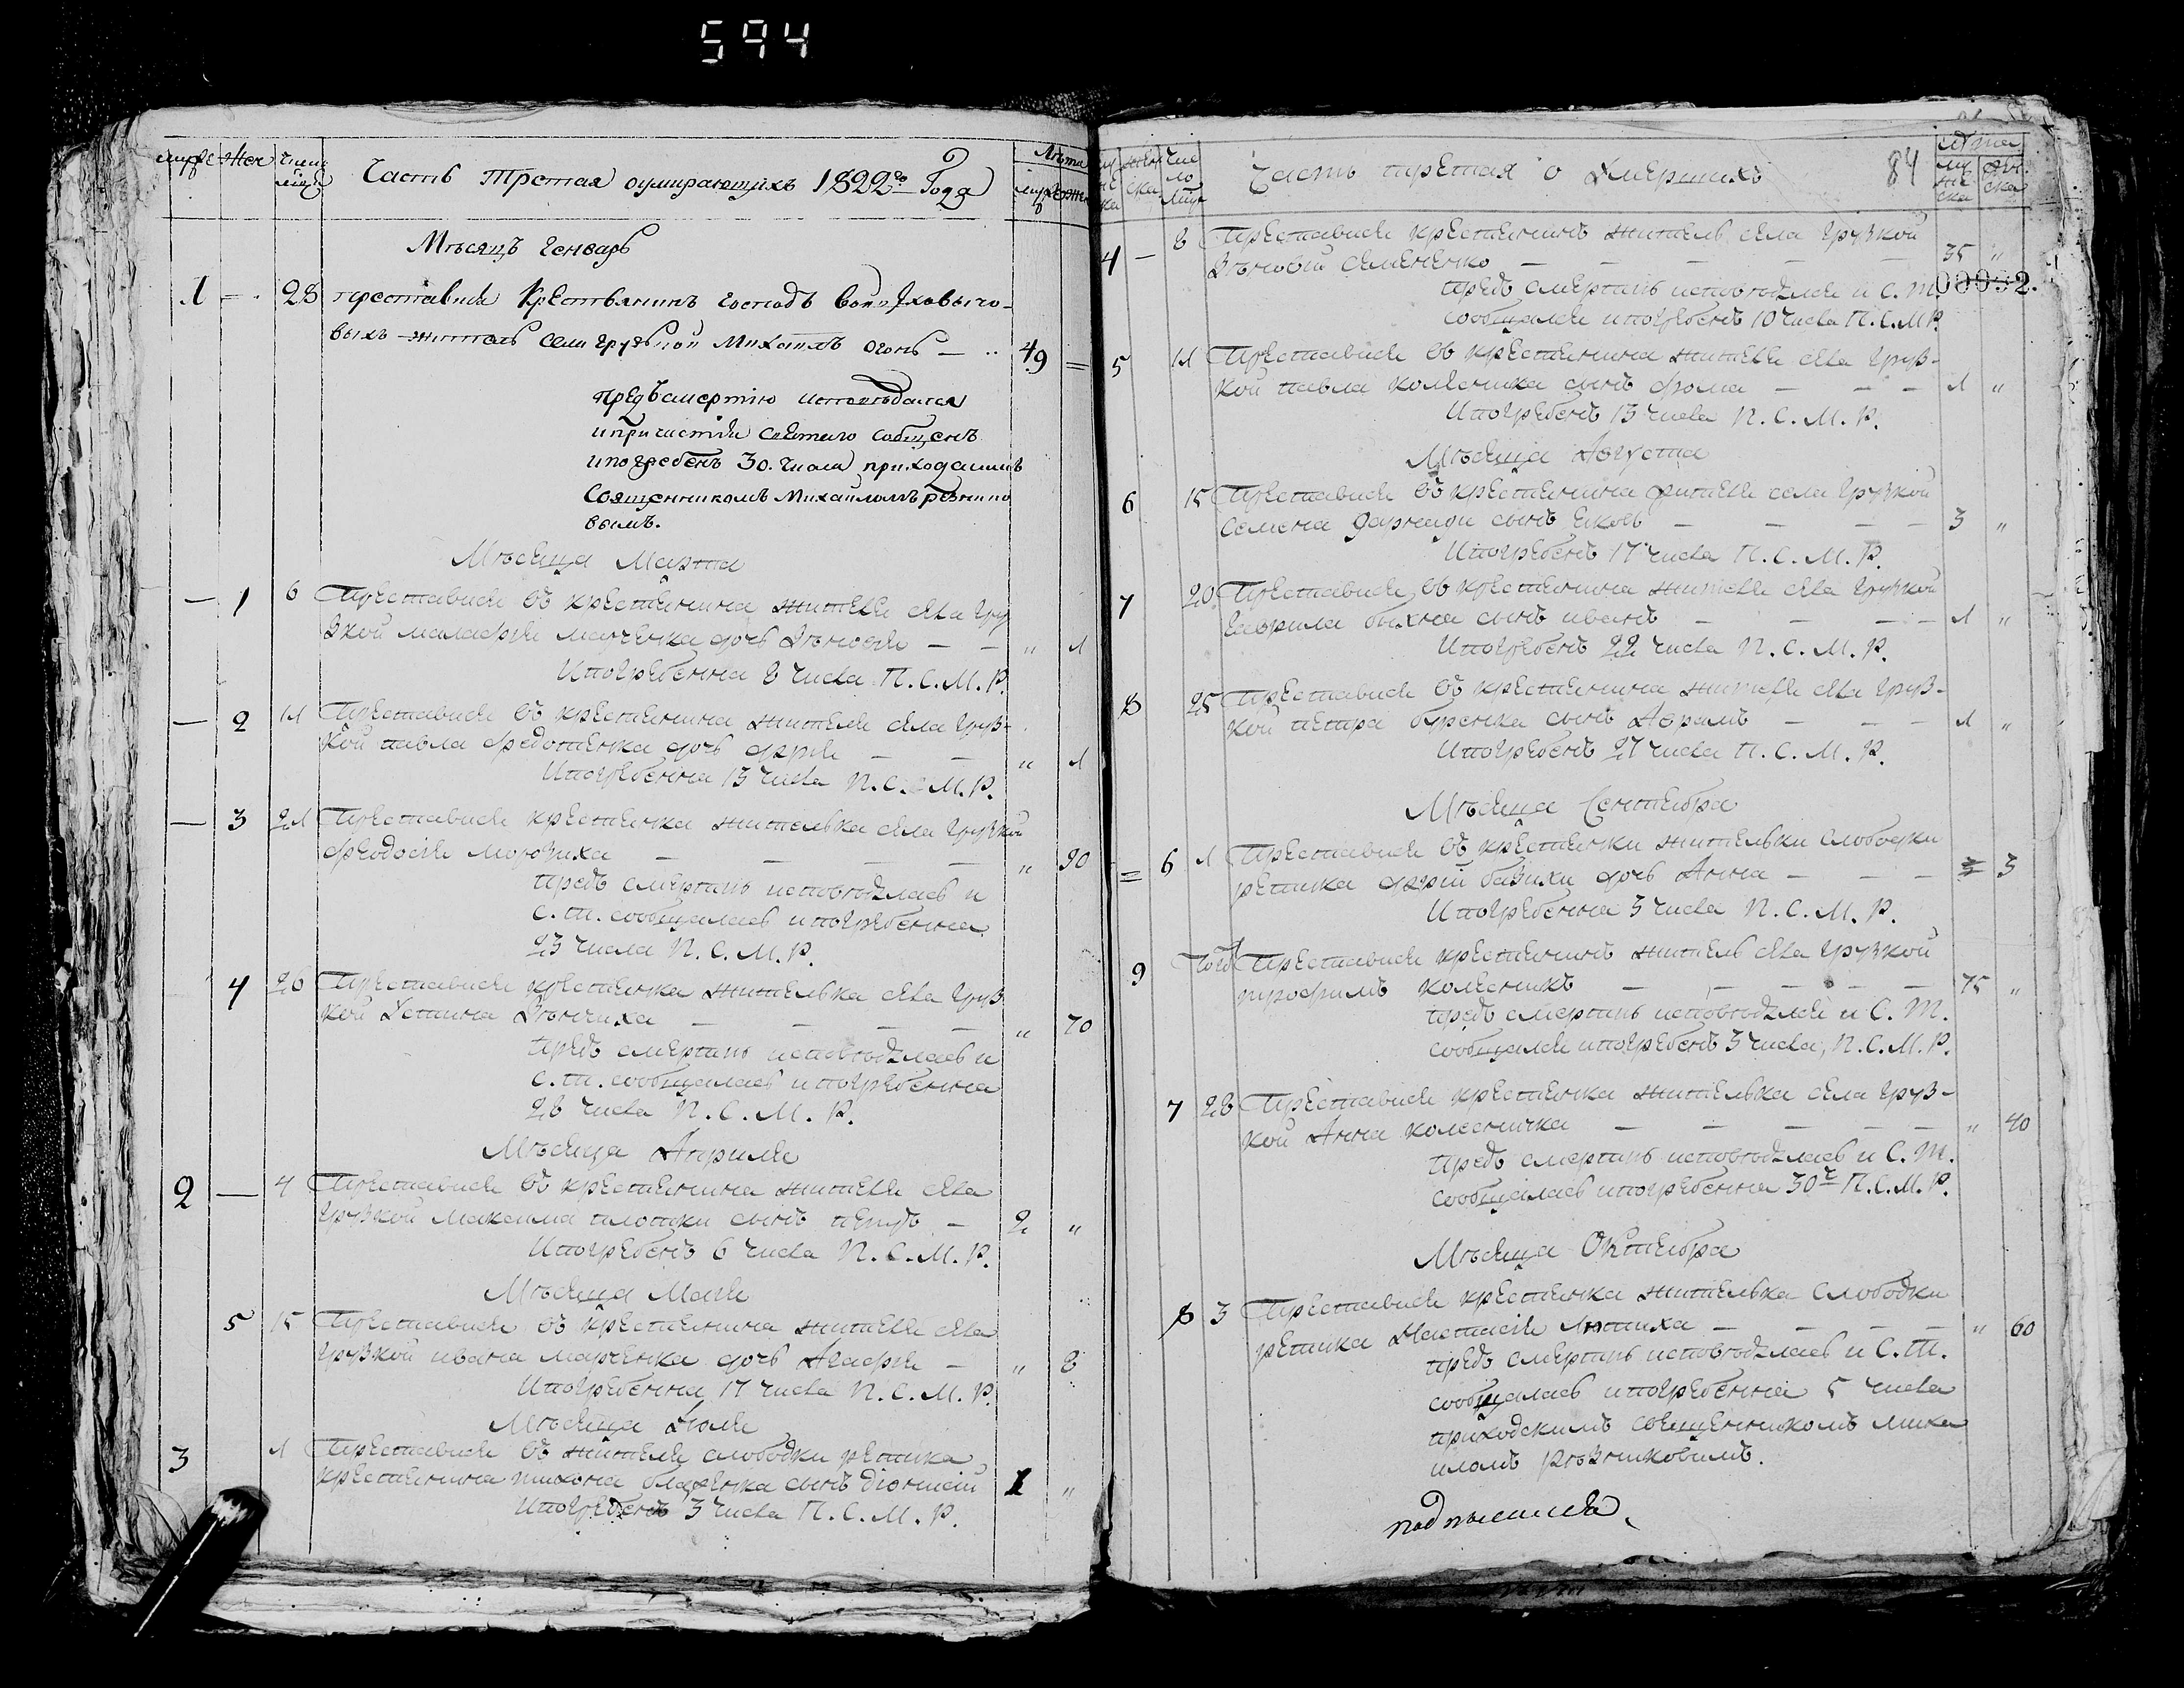 594
муже Жен число мѣсяц Часть третая оумирающихъ 1822го Года Лѣта муже Жен
Мѣсяцъ Генварь
1 = 28 преставися Крествянинъ господъ
выхъ житель села грузкой Михаилъ огонь — 49 =
предъсмертію исповѣдался
и причастія святаго собщенъ
ипогребенъ 30. числа приходским
Священникомъ Михаиломъ Резнико
вымъ.
Мѣсяца Марта
— 1 6 Преставися въ крестянина жителя села гру
зкой маларфія марченка дочь Зѣновія — — " 1
Ипогребенна 8 числа П. С. М. Р.
— 2 11 Преставися въ крестянина жителя села груз-
кой павла федотенка дочь дарія — — " 1
Ипогребенна 13 числа П. С. М. Р.
— 3 21 Преставися крестянка жителька села грузкой
феодосія морозиха — — — — " 90
предъ смертию исповѣдалась и
С. Т. сообщалась и погребенна
23 числа П. С. М. Р.
4 26 Преставися крестянка жителька села груз
кой Устина Зѣнчиха — — — — " 70
предъ смертию исповѣдалась и
С. Т. сообщалась и погребенна
28 числа П. С. М. Р.
Мѣсяца Априля
2 — 4 Преставися въ крестянина жителя села
грузкой максима плотки сынъ — 2 "
Ипогребенъ 6 числа П. С. М. Р.
Мѣсяца Маия
5 15 Преставися въ крестянина жителя села
грузкой ивана марченка дочь Агафія — " 8
Ипогребенна 17 числа П. С. М. Р.
Мѣсяца Іюля
3 1 Преставися въ жителя слободки репика
крестянина тихона сынъ діонисій 1 "
Ипогребенъ 3 числа П. С. М. Р.
му же ска жен ска Чис ло Мѣс Часть третая о Умершихъ 84 Лѣта му же ска жен ска
4 — 8 Преставися крестянинъ житель села грузкой
Зѣновій Семененко — — — — — 35 "
предъ смертию исповѣдался и С. Т. 00092.
сообщался и погребенъ 10 числа П. С. М. Р.
5 11 Преставися въ крестянина жителя села груз-
кой павла колесника сынъ фома — — — 1 "
Ипогребенъ 13 числа П. С. М. Р.
Мѣсяца Августа
6 15 Преставися въ крестянина жителя села грузкой
Семена сынъ яковъ — — — — 3 "
Ипогребенъ 17 числа П. С. М. Р.
7 20 Преставися въ крестянина жителя села грузкой
гаврила сынъ иванъ — — — — 1 "
Ипогребенъ 22 числа П. С. М. Р.
8 25 Преставися въ крестянина жителя села груз-
кой петра сынъ Аврамъ — — — 1 "
Ипогребенъ 27 числа П. С. М. Р.
Мѣсяца Сентебра
= 6 1 Преставися въ крестянки жительки слободки
репика даріи базихи дочь Анна — — — 3
Ипогребенна 3 числа П. С. М. Р.
9 Того Преставися крестянинъ житель села грузкой
трофимъ колесникъ — — — — — 75 "
предъ смертию исповѣдался и С. Т.
сообщался и погребенъ 3 числа, П. С. М. Р.
7 28 Преставися крестянка жителька села груз-
кой Анна колесничка — — — — — " 40
предъ смертию исповѣдалась и С. Т.
сообщалась и погребенна 30 ч П. С. М. Р.
Мѣсяца Октебра
8 3 Преставися крестянка жителька слободки
репика Настасія — — — — " 60
предъ смертию исповѣдалась и С. Т.
сообщалась и погребенна 5 числа
приходскимъ священникомъ миха
иломъ Рѣзниковимъ.